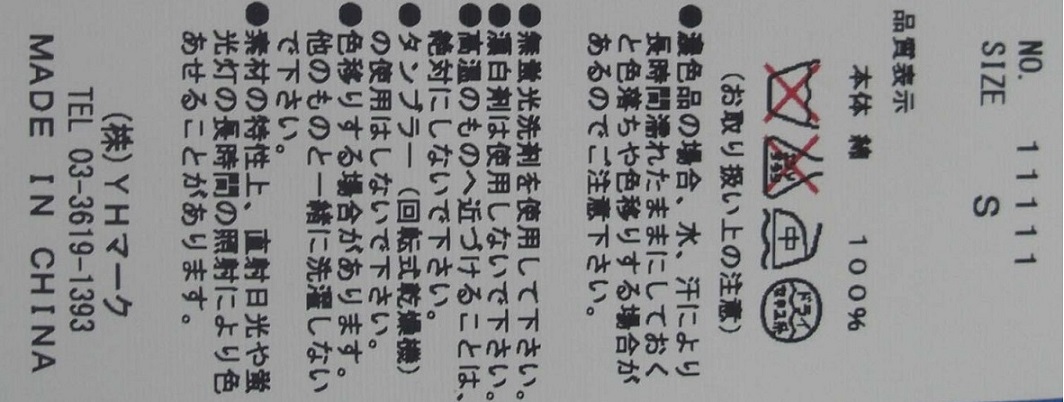 NO. 11111
SIZE S
品質表示
本体 綿 100%
中
ドライ
セキユ系
(お取り扱い上の注意)
●濃色品の場合、水、汗により
長時間濡れたままにしておく
と色落ちや色移りする場合が
あるのでご注意下さい。
●無蛍光洗剤を使用して下さい。
●漂白剤は使用しないで下さい。
●高温のものへ近づけることは、
絶対にしないで下さい。
●タンブラー(回転式乾燥機)
の使用はしないで下さい。
●色移りする場合があります。
他のものと一緒に洗濯しない
で下さい。
●素材の特性上、直射日光や蛍
光灯の長時間の照射により色
あせることがあります。
(株)YHマーク
TEL 03-3619-1393
MADE IN CHINA